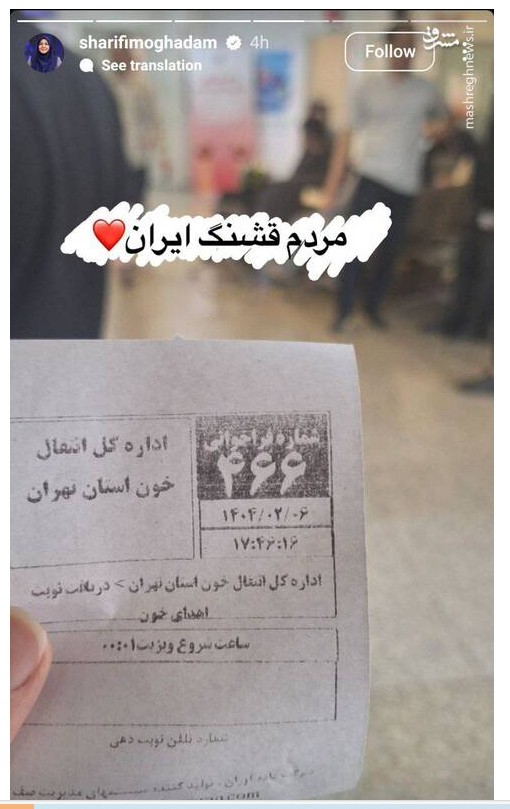 sharifimoghadam 4h
See translation
Follow
مشرق
mashreghnews.ir
مردم قشنگ ایران❤️
شماره فراخوانی
۴۶۶
۱۴۰۴/۰۲/۰۶
۱۷:۴۶:۱۶
اداره کل انتقال
خون استان تهران
اداره کل انتقال خون استان تهران > دریافت نوبت
اهدای خون
ساعت شروع ویزیت ۰۰:۰۱
شماره تلفن نوبت دهی